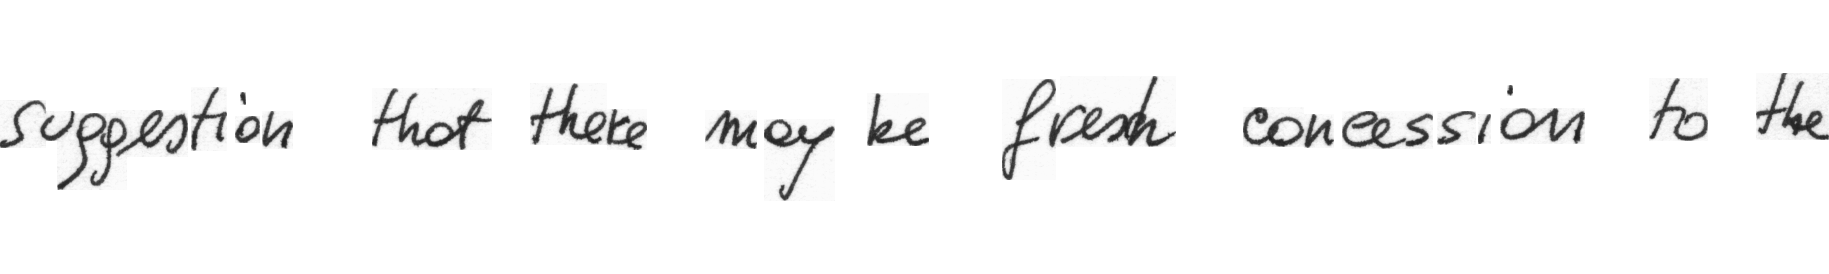 suggestion that there may be fresh concession to the